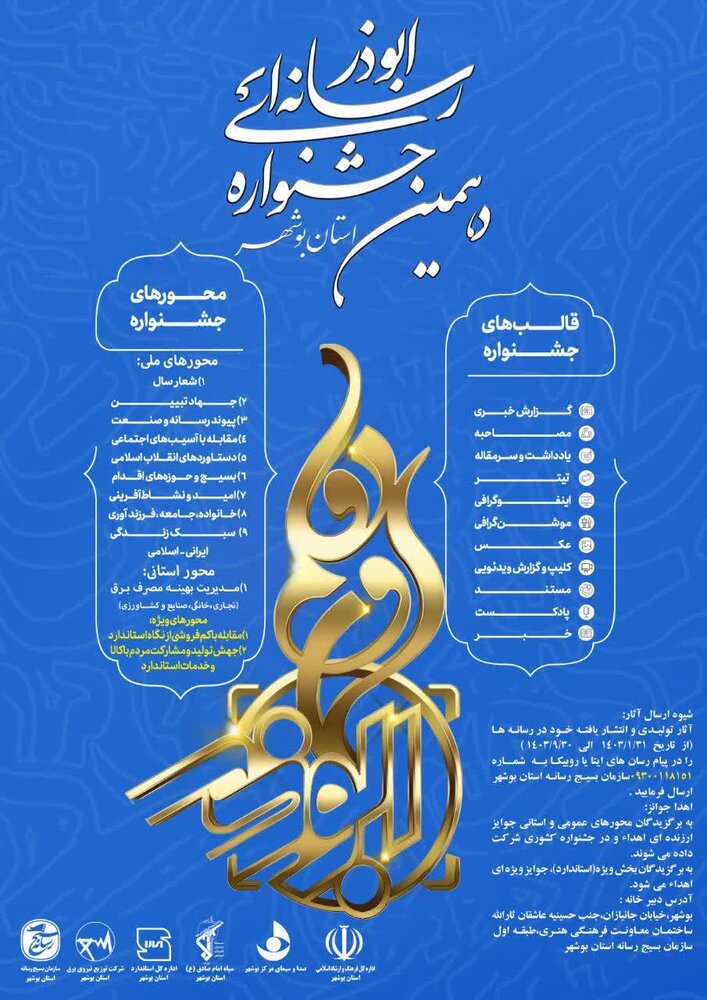 دهمین
جشنواره
رسانه‌ای
ابوذر
استان بوشهر
قالب‌های
جشنواره
گزارش خبری
مصاحبه
یادداشت و سرمقاله
تیتر
اینفوگرافی
موشن‌گرافی
عکس
کلیپ و گزارش ویدئویی
مستند
پادکست
خبر
محورهای
جشنواره
محورهای ملی:
۱) شعار سال
۲) جهاد تبیین
۳) پیوند رسانه و صنعت
۴) مقابله با آسیب‌های اجتماعی
۵) دستاوردهای انقلاب اسلامی
۶) بسیج و حوزه‌های اقدام
۷) امید و نشاط‌آفرینی
۸) خانواده، جامعه، فرزندآوری
۹) سبک زندگی
ایرانی-اسلامی
محور استانی:
۱) مدیریت بهینه مصرف برق
(تجاری، خانگی، صنایع و کشاورزی)
محورهای ویژه:
۱) مقابله با کم‌فروشی از نگاه استاندارد
۲) جهش تولید و مشارکت مردم با کالا
و خدمات استاندارد
شیوه ارسال آثار:
آثار تولیدی و انتشار یافته خود در رسانه ها
(از تاریخ ۱۴۰۳/۱/۳۱ الی ۱۴۰۳/۹/۳۰)
را در پیام رسان های ایتا یا روبیکا به شماره
۰۹۳۰۰۱۱۸۱۵۱ سازمان بسیج رسانه استان بوشهر
ارسال فرمایید .
اهدا جوائز:
به برگزیدگان محورهای عمومی و استانی جوایز
ارزنده ای اهداء و در جشنواره کشوری شرکت
داده می شوند.
به برگزیدگان بخش ویژه (استاندارد)، جوایز ویژه ای
اهداء می شود.
آدرس دبیر خانه :
بوشهر، خیابان جانبازان، جنب حسینیه عاشقان ثارالله
ساختمان معاونت فرهنگی هنری، طبقه اول
سازمان بسیج رسانه استان بوشهر
ابوذر
اداره کل فرهنگ و ارشاد اسلامی
استان بوشهر
صدا و سیمای مرکز بوشهر
سپاه امام صادق (ع)
استان بوشهر
اداره کل استاندارد
استان بوشهر
شرکت توزیع نیروی برق
استان بوشهر
سازمان بسیج رسانه
استان بوشهر